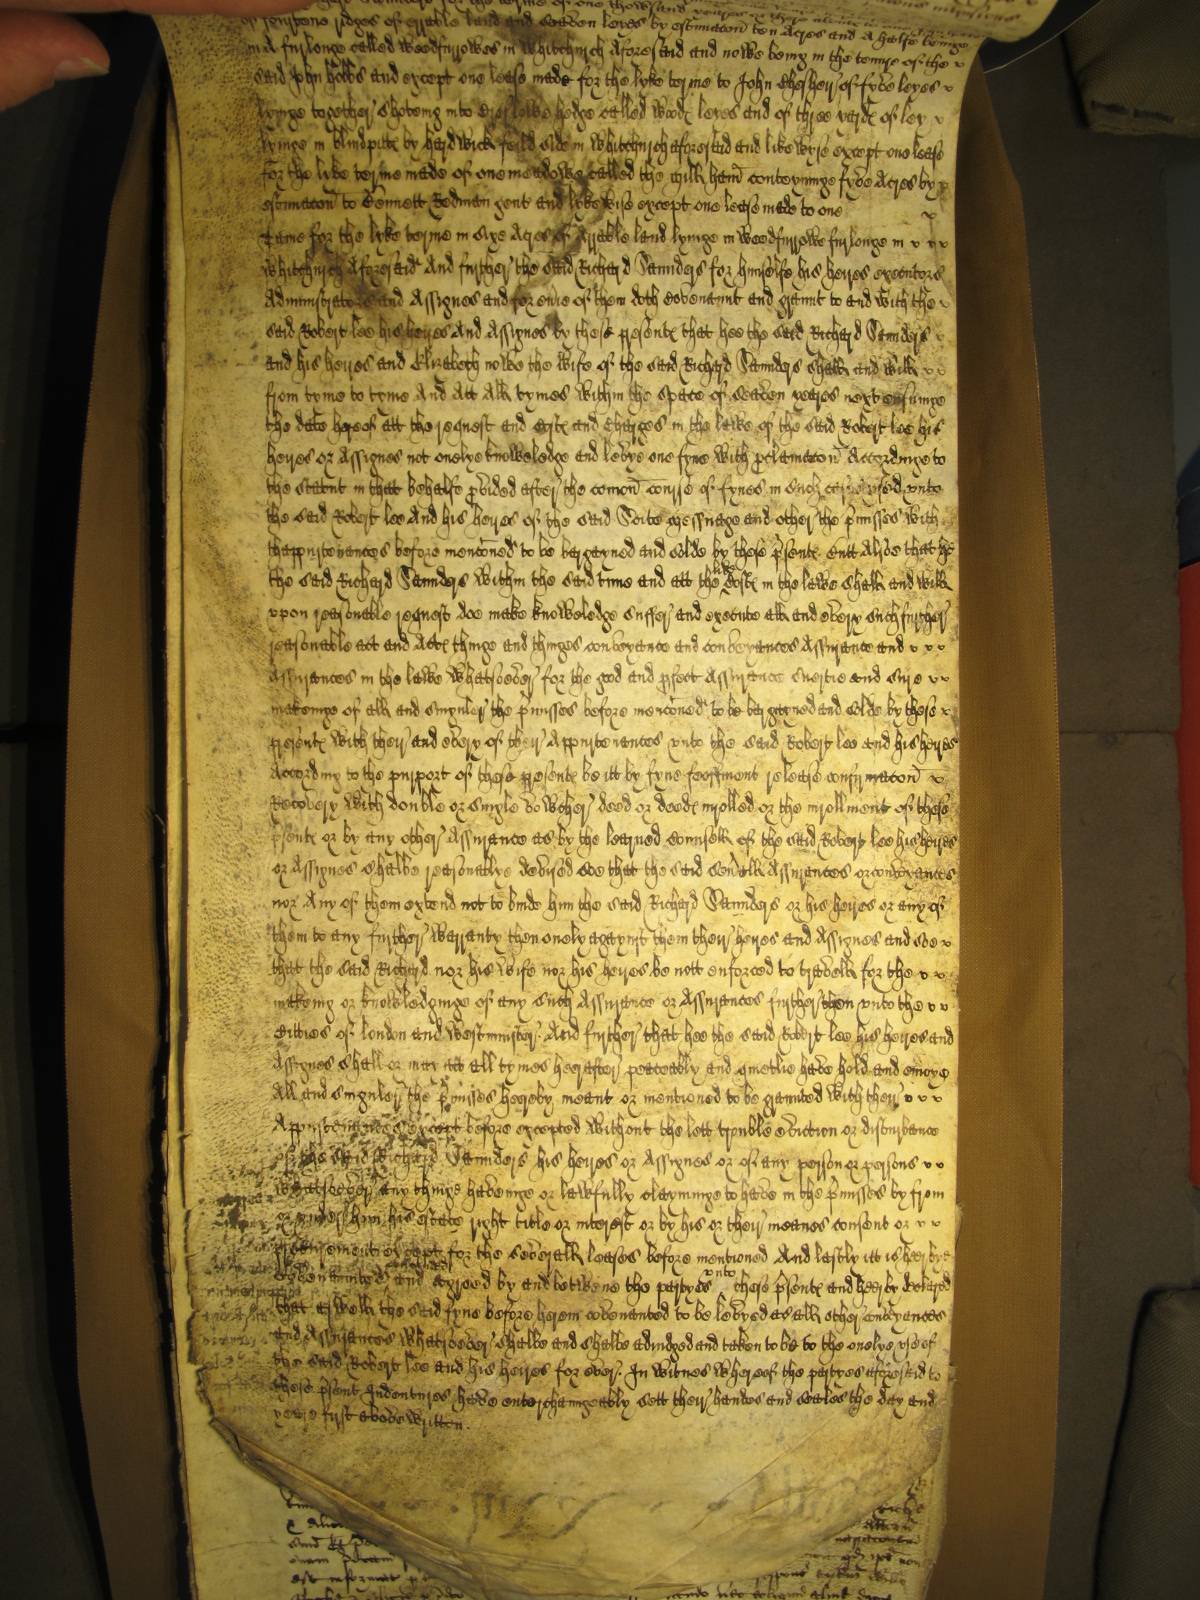 for the terme of one thousand yeares
of ridges of errable land and seaven leyes by estimacon ten Acres and A halfe beinge
in A furlonge called woodfurrowes in whitchurch Aforesaid and nowe being in the tenure of the
said John Hobbs and except one lease made for the lyke terme to John Chesher of fyve leyes
lyinge together shoteing into hedge called woode leyes and of three yarde of ley
lyinge in blindpitte by hardwick feild side in whitchurch aforesaid and likewyse except one lease
for the lyke terme made of one meadowe called the mill ham conteyninge fyve Acres by
estimacon to Bennett Redman gent and lykewise except one lease made to one
Tame for the lyke terme in sixe Acres of Arrable land lyinge in woodfurrowe furlonge in
whitchurch Aforesaid And further the said Richard Saunders for himselfe his heyres executors
Administrators and Assignes and for evie of them doth covenaunt and graunt to and with the
said Robert lee his heyres And Assignes by these presente that hee the said Richard Saunders
and his heyres and Elizabeth nowe the wife of the said Richard Saunders shall and will
from tyme to tyme And Att All tymes within the space of seaven yeares next ensuinge
the date hereof att the request and coste and charges in the lawe of the said Robert lee his
heyres or Assignes not onelye knowledge and levye one fyne with pclamacon Accordinge to
the statut in that behalfe pvided after the comon course of fynes in such case used unto
the said Robert lee And his heyres of the said Scite messuage and other the pmisses with
thappurtenances before menconed to be bargayned and solde by these psente. butt Alsoe that he
the said Richard Saunders within the said time and att the like coste in the lawe shall and will
upon reasonable request doe make knowledge suffer and execute all and every such further
reasonable act and Acte thinge and thinges conveyance and conveyances Assurance and
Assurances in the lawe whatsoever for the good and pfect Assurance suertie and sure
makeinge of all and singuler the pmisses before menconed to be bargayned and solde by these
presente with their and every of their Appurtenances unto the said Robert lee and his heyres
According to the purport of these presente be itt by fyne feoffment release confirmacon
Recovery with double or single vowcher deed or deede inrolled or the inrollment of these
psente or by any other Assurance as by the learned councell of the said Robert lee his heyres
or Assignes shalbe reasonablye devised soe that the said sevall Assurances or conveyances
nor Any of them extend not to binde him the said Richard Saunders or his heyres or any of
them to any further warranty then onely agaynst them their heyres and Assignes and soe
that the said Richard nor his wife nor his heyres be nott enforced to travell for the
makeing or knowledginge of any such Assurance or Assurances further then unto the
Citties of london and westminster. And further that hee the said Robert lee his heyres and
Assignes shall or may att all tymes hereafter peaceably and quietlie have hold and enioye
All and singuler the pmisses hereby meant or mentioned to be graunted with their
Appurtenances except before excepted without the lett trouble eviction or disturbance
of the said Richard Saunders his heyres or Assignes or of any person or persons
whatsoever any thinge haveinge or lawfully clayminge to have in the pmisses by from
or under him his estate right title or interest or by his or their meanes consent or
procurement except for the severall leases before mentioned And lastly itt is hereby
covenanted and agreed by and betwene the partyes unto these psente and hereby declared
that aswell the said fyne before herein covenanted to be levyed as all other conveyances
and Assurances whatsoever shalbe and shalbe adiudged and taken to be to the onelye use of
the said Robert lee and his heyres for ever. In witnes whereof the partyes aforesaid to
these psent Indentures have enterchaungeably sett their handes and seales the day and
yeare first above written.